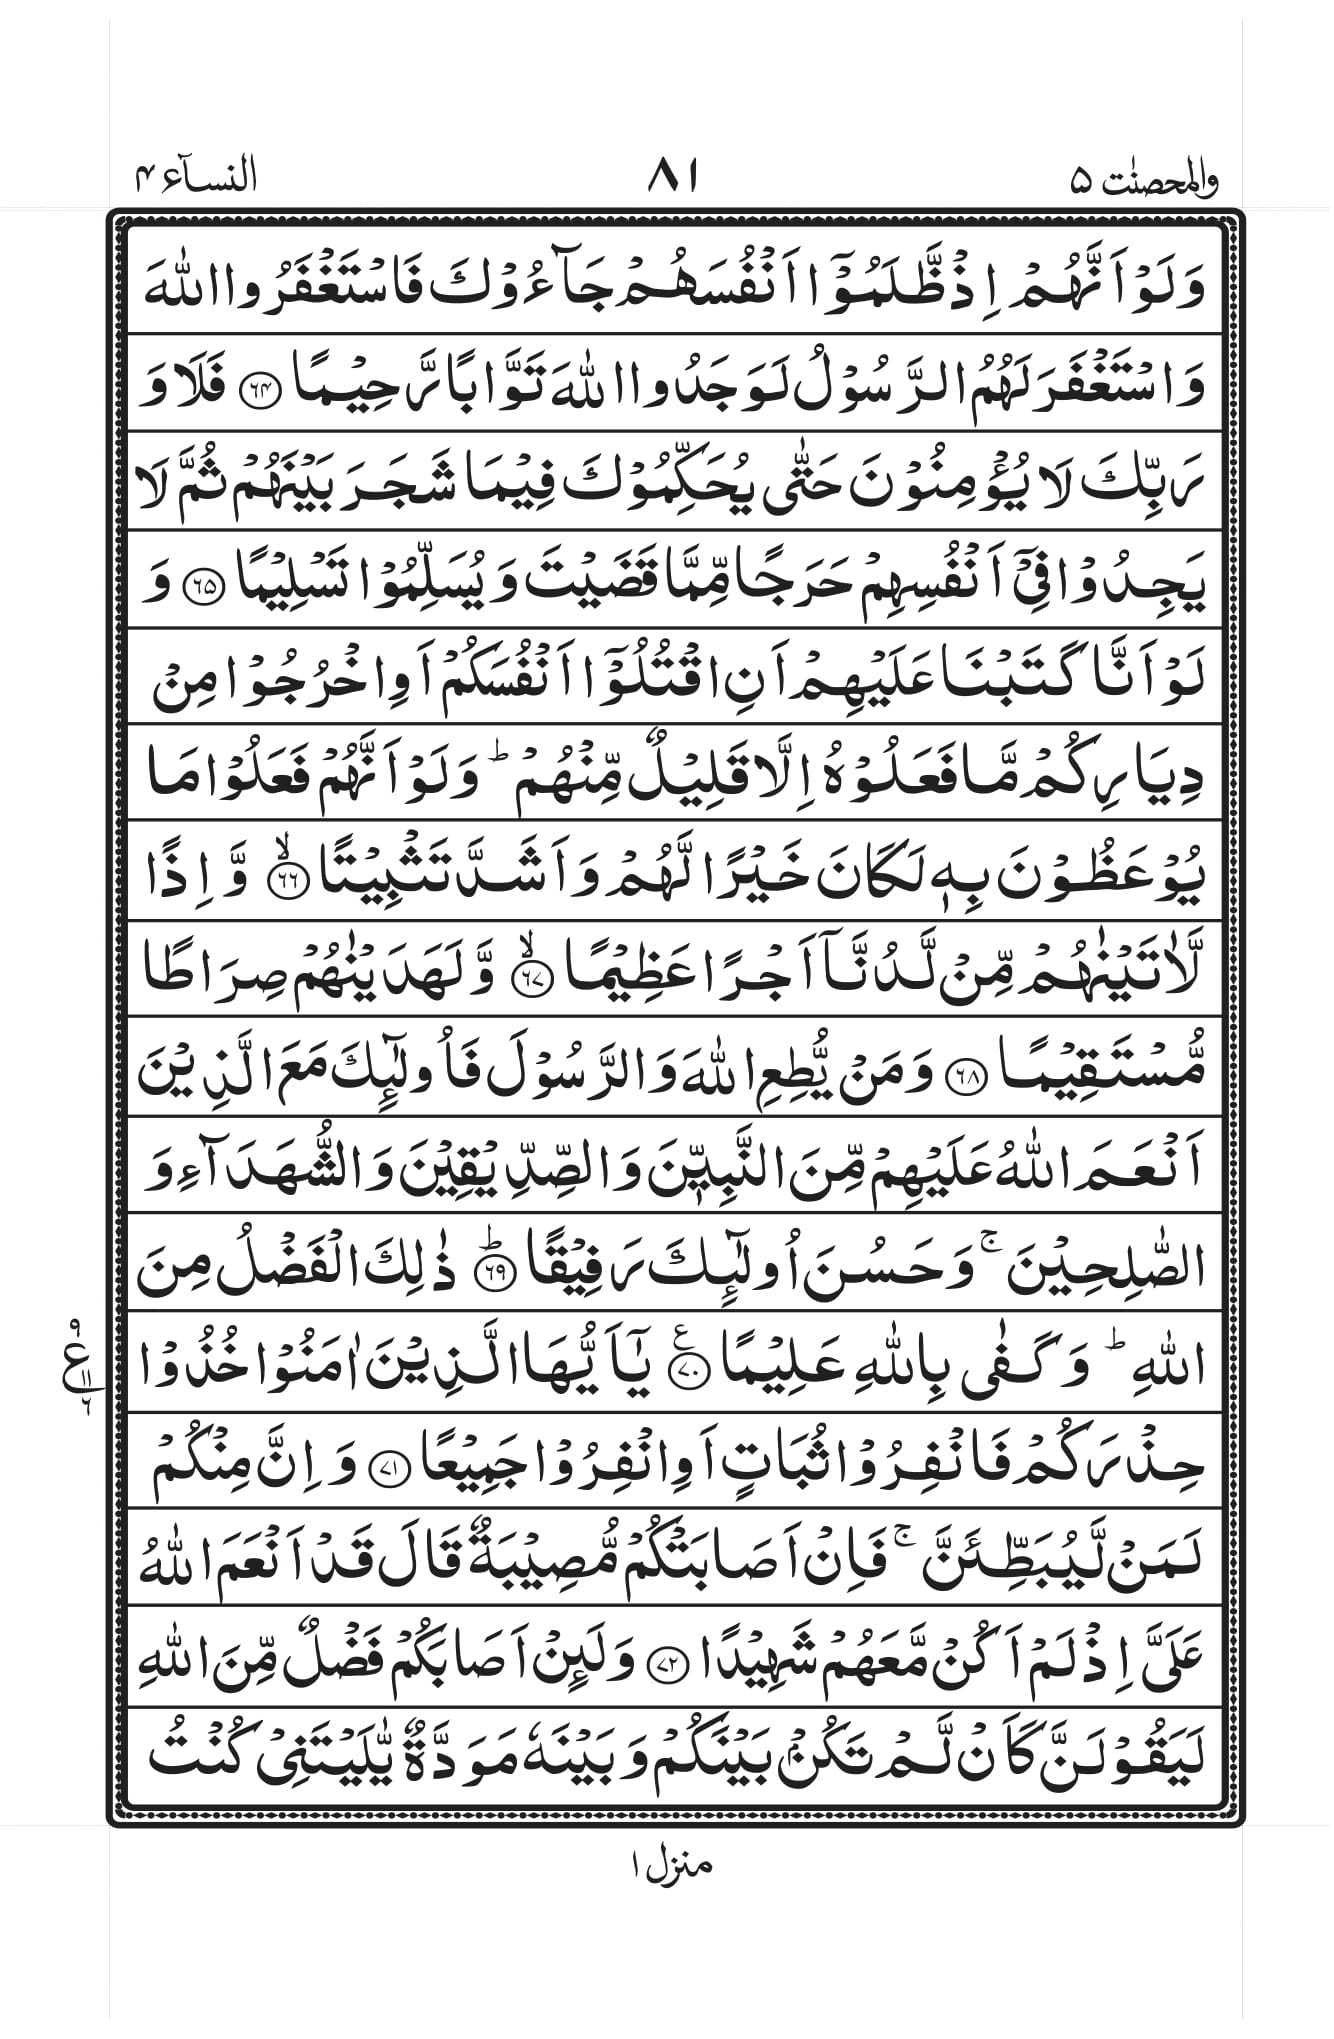 والمحصنٰت ۵
۸۱
النسآء ۴
وَلَوْ اَنَّهُمْ اِذْ ظَّلَمُوْۤا اَنْفُسَهُمْ جَآءُوْكَ فَاسْتَغْفَرُوا اللّٰهَ
وَاسْتَغْفَرَ لَهُمُ الرَّسُوْلُ لَوَجَدُوا اللّٰهَ تَوَّابًا رَّحِيْمًا ﴿۶۴﴾ فَلَا وَ
رَبِّكَ لَا يُؤْمِنُوْنَ حَتّٰى يُحَكِّمُوْكَ فِيْمَا شَجَرَ بَيْنَهُمْ ثُمَّ لَا
يَجِدُوْا فِيْۤ اَنْفُسِهِمْ حَرَجًا مِّمَّا قَضَيْتَ وَيُسَلِّمُوْا تَسْلِيْمًا ﴿۶۵﴾ وَ
لَوْ اَنَّا كَتَبْنَا عَلَيْهِمْ اَنِ اقْتُلُوْۤا اَنْفُسَكُمْ اَوِ اخْرُجُوْا مِنْ
دِيَارِكُمْ مَّا فَعَلُوْهُ اِلَّا قَلِيْلٌ مِّنْهُمْ ؕ وَلَوْ اَنَّهُمْ فَعَلُوْا مَا
يُوْعَظُوْنَ بِهٖ لَكَانَ خَيْرًا لَّهُمْ وَاَشَدَّ تَثْبِيْتًا ۙ﴿۶۶﴾ وَّاِذًا
لَّاٰتَيْنٰهُمْ مِّنْ لَّدُنَّاۤ اَجْرًا عَظِيْمًا ۙ﴿۶۷﴾ وَّلَهَدَيْنٰهُمْ صِرَاطًا
مُّسْتَقِيْمًا ﴿۶۸﴾ وَمَنْ يُّطِعِ اللّٰهَ وَالرَّسُوْلَ فَاُولٰٓئِكَ مَعَ الَّذِيْنَ
اَنْعَمَ اللّٰهُ عَلَيْهِمْ مِّنَ النَّبِيّٖنَ وَالصِّدِّيْقِيْنَ وَالشُّهَدَآءِ وَ
الصّٰلِحِيْنَ ۚ وَحَسُنَ اُولٰٓئِكَ رَفِيْقًا ؕ﴿۶۹﴾ ذٰلِكَ الْفَضْلُ مِنَ
اللّٰهِ ؕ وَكَفٰى بِاللّٰهِ عَلِيْمًا ﴿۷۰﴾ ع يٰۤاَيُّهَا الَّذِيْنَ اٰمَنُوْا خُذُوْا
۹ ع ۱۱ ۶
حِذْرَكُمْ فَانْفِرُوْا ثُبَاتٍ اَوِ انْفِرُوْا جَمِيْعًا ﴿۷۱﴾ وَاِنَّ مِنْكُمْ
لَمَنْ لَّيُبَطِّئَنَّ ۚ فَاِنْ اَصَابَتْكُمْ مُّصِيْبَةٌ قَالَ قَدْ اَنْعَمَ اللّٰهُ
عَلَيَّ اِذْ لَمْ اَكُنْ مَّعَهُمْ شَهِيْدًا ﴿۷۲﴾ وَلَئِنْ اَصَابَكُمْ فَضْلٌ مِّنَ اللّٰهِ
لَيَقُوْلَنَّ كَاَنْ لَّمْ تَكُنْۢ بَيْنَكُمْ وَبَيْنَهٗ مَوَدَّةٌ يّٰلَيْتَنِيْ كُنْتُ
منزل ۱